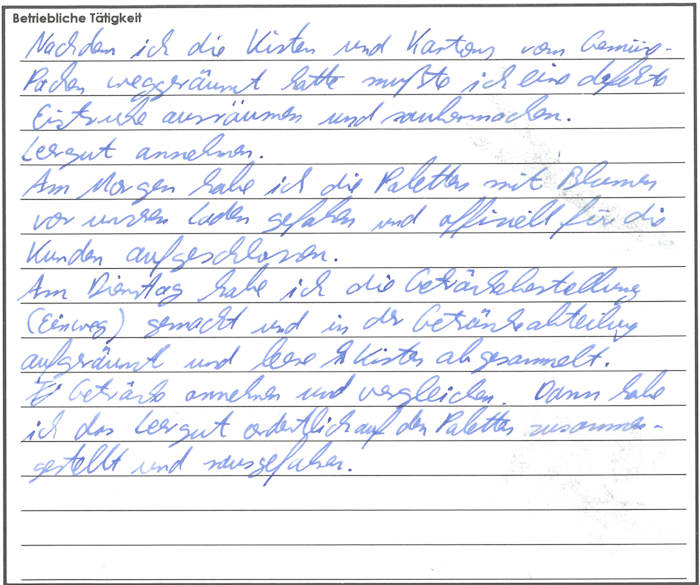 Betriebliche Tätigkeit
Nachdem ich die Kisten und Kartons vom Gemüse-
Packen weggeräumt hatte mußte ich eine defekte
Eistruhe ausräumen und saubermachen.
Leergut annehmen.
Am Morgen habe ich die Paletten mit Blumen
vor unseren Laden gefahren und offiziell für die
Kunden aufgeschlossen.
Am Dienstag habe ich die Getränkebestellung
(Einweg) gemacht und in der Getränkeabteilung
aufgeräumt und leere Kisten abgesammelt.
Getränke annehmen und vergleichen. Dann habe
ich das Leergut ordentlich auf den Paletten zusammen-
gestellt und rausgefahren.